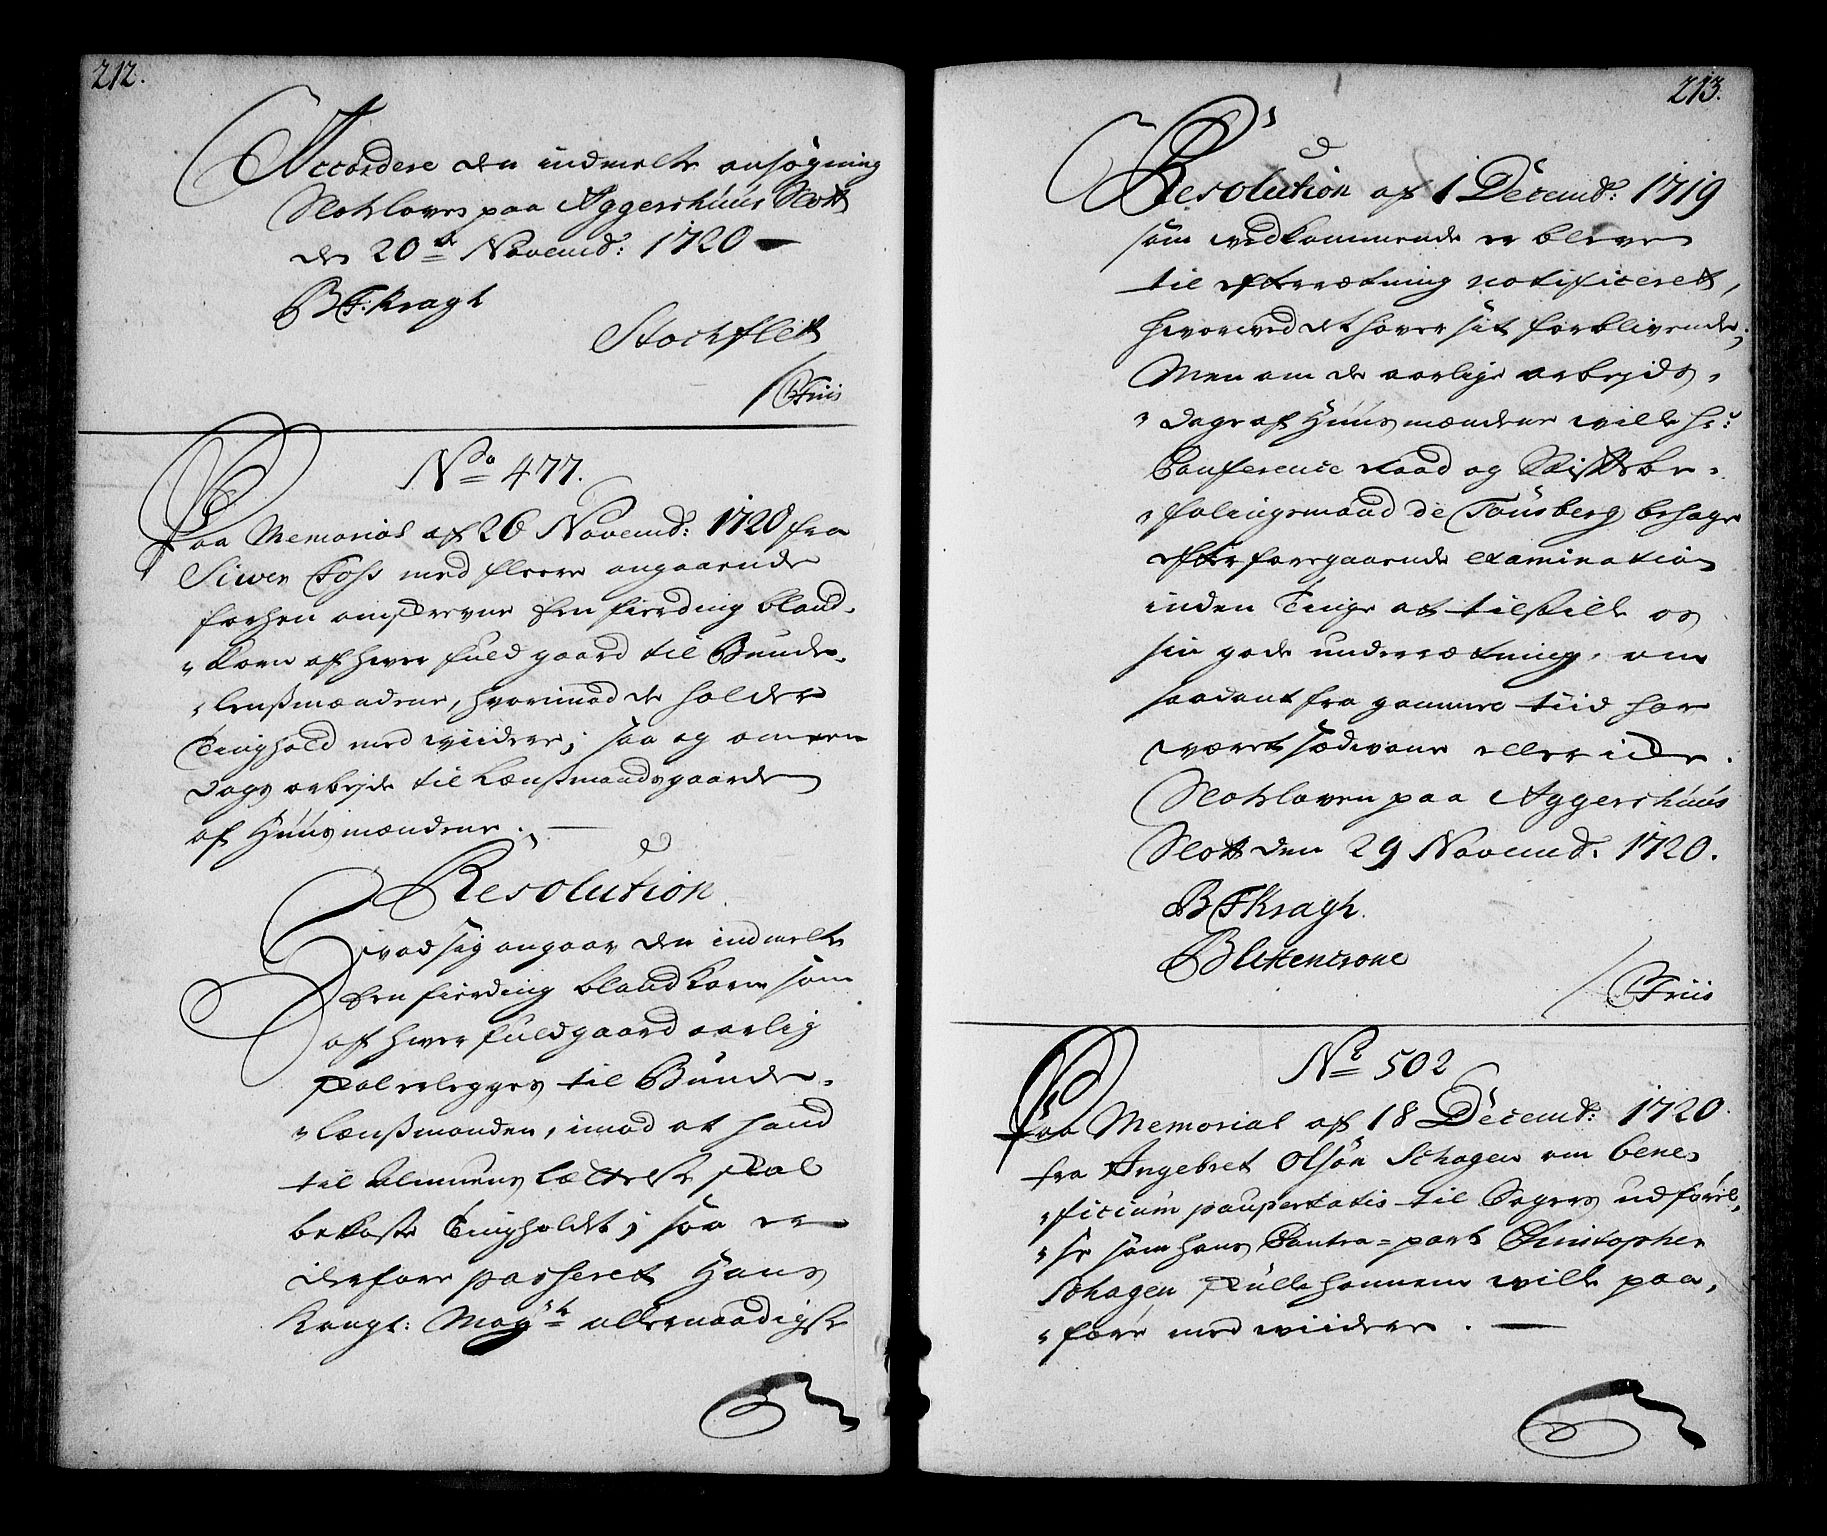 212.
Accordere den indmelte ansøgning
Slotzloven paa Aggershuus Slott
den 20de Novemb: 1720
B F: Kragh
Stochflett
/ C Friis
No 477.
Paa Memorial af 26 Novemb: 1720 fra
Siwer Foss med fleere angaaende
forhen omskrevne Een fierding bland-
"korn af hver fuld gaard til Bunde-
"lenßmændene, hvorimod de holder
Tinghold med widere; saa og om een
dags arbejde til Lænßmandsgaarden
af Huusmændene.
Resolution
Hvad sig angaar den indmelte
Een fierding blandkorn som
af hver fuldgaard aarlig
skal erlegges til Bunde-
"Lænßmanden, imod at hand
til Almuens lættelse skal
bekoste Tingholdet; saa er
derfore passeret Hans
Kongl: Mayts allernaadigste
213.
Resolution af 1 Decemb: 1719
som vedkommende er bleven
til efterrætning notificeret,
hvorved det haver sit forblivende;
Men om de aarlige arbejds-
"dage af Huusmændene wille hr:
Conference Raad og Stiftsbe-
"falingsmand de Tønsberg behage
efter foregaaende examination
inden Tinge at tilstille os
sin gode underrætning, om
saadant fra gammel tiid har
været sædvane eller icke.
Slotzloven paa Aggershuus
Slott den 29 Novemb. 1720.
B F Kragh.
B Littencrone
/ C Friis
No 502
Paa Memorial af 18 Decemb: 1720.
fra Angebret Olsøn Schagen om bene-
"ficium paupertatis til Sagens udførel-
"se som hans Contra-part Christopher
Schagen skulle hannem wille paa-
"føre med widere.